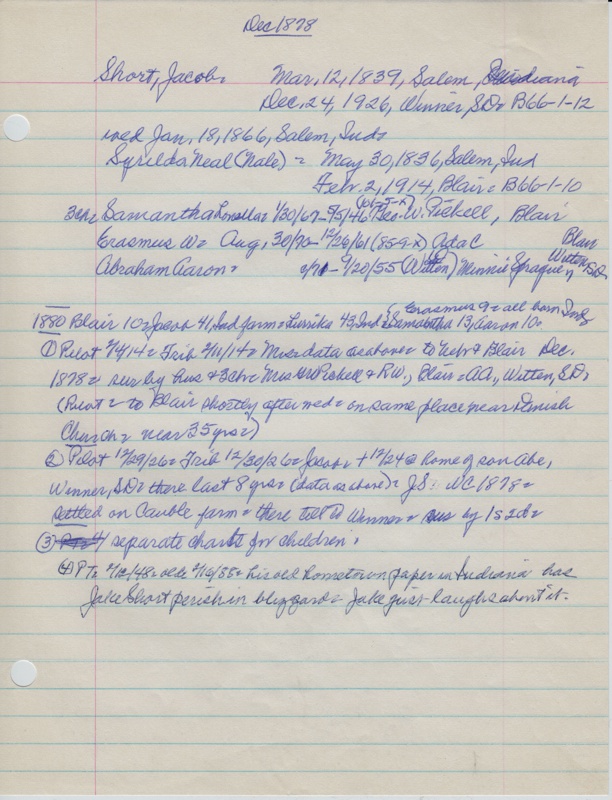 Dec 1878
Short, Jacob = Mar, 12, 1839, Salem, Indiana
Dec, 24, 1926, Winner, SD = B66-1-12
wed Jan, 18, 1866, Salem, Ind =
Syrilda Neal (Nale) = May 30, 1836, Salem, Ind
Feb. 2, 1914, Blair = B66-1-10
3ch = Samantha = 1/30/67- W. Pickell, Blair
Erasmus W = Aug, 30/70- 12/26/61 (859-x) Ada C Blair
Abraham Aaron = - 9/20/55 (Witten) Minnie Sprague Witten, SD
(Erasmus 9 = all born Ind
1880 Blair 10 = Jacob 41, Ind farm = 43, Ind = Samantha 13, Aaron 10 =
① Pilot = Trib 2/11/14 = data as above = to Nebr & Blair Dec.
1878 = sur by hus & 3ch = Mrs GW Pickell & RW, Blair = AA, Witten, SD =
(Pilot = to Blair shortly after wed = on same place near Danish
Church = near 35 yrs =)
② Pilot 12/29/26 = Trib 12/30/26 = Jacob + 12/24 @ home of son Abe,
Winner, SD = there last 8 yrs = (data as above) = JS = WC 1878 =
settled on Cauble farm = there till to Winner = sur by 1s 2d =
③ 4 separate charts for children.
④ PT = = his old hometown paper in Indiana has
Jake Short perish in blizzard = Jake just laughs about it.